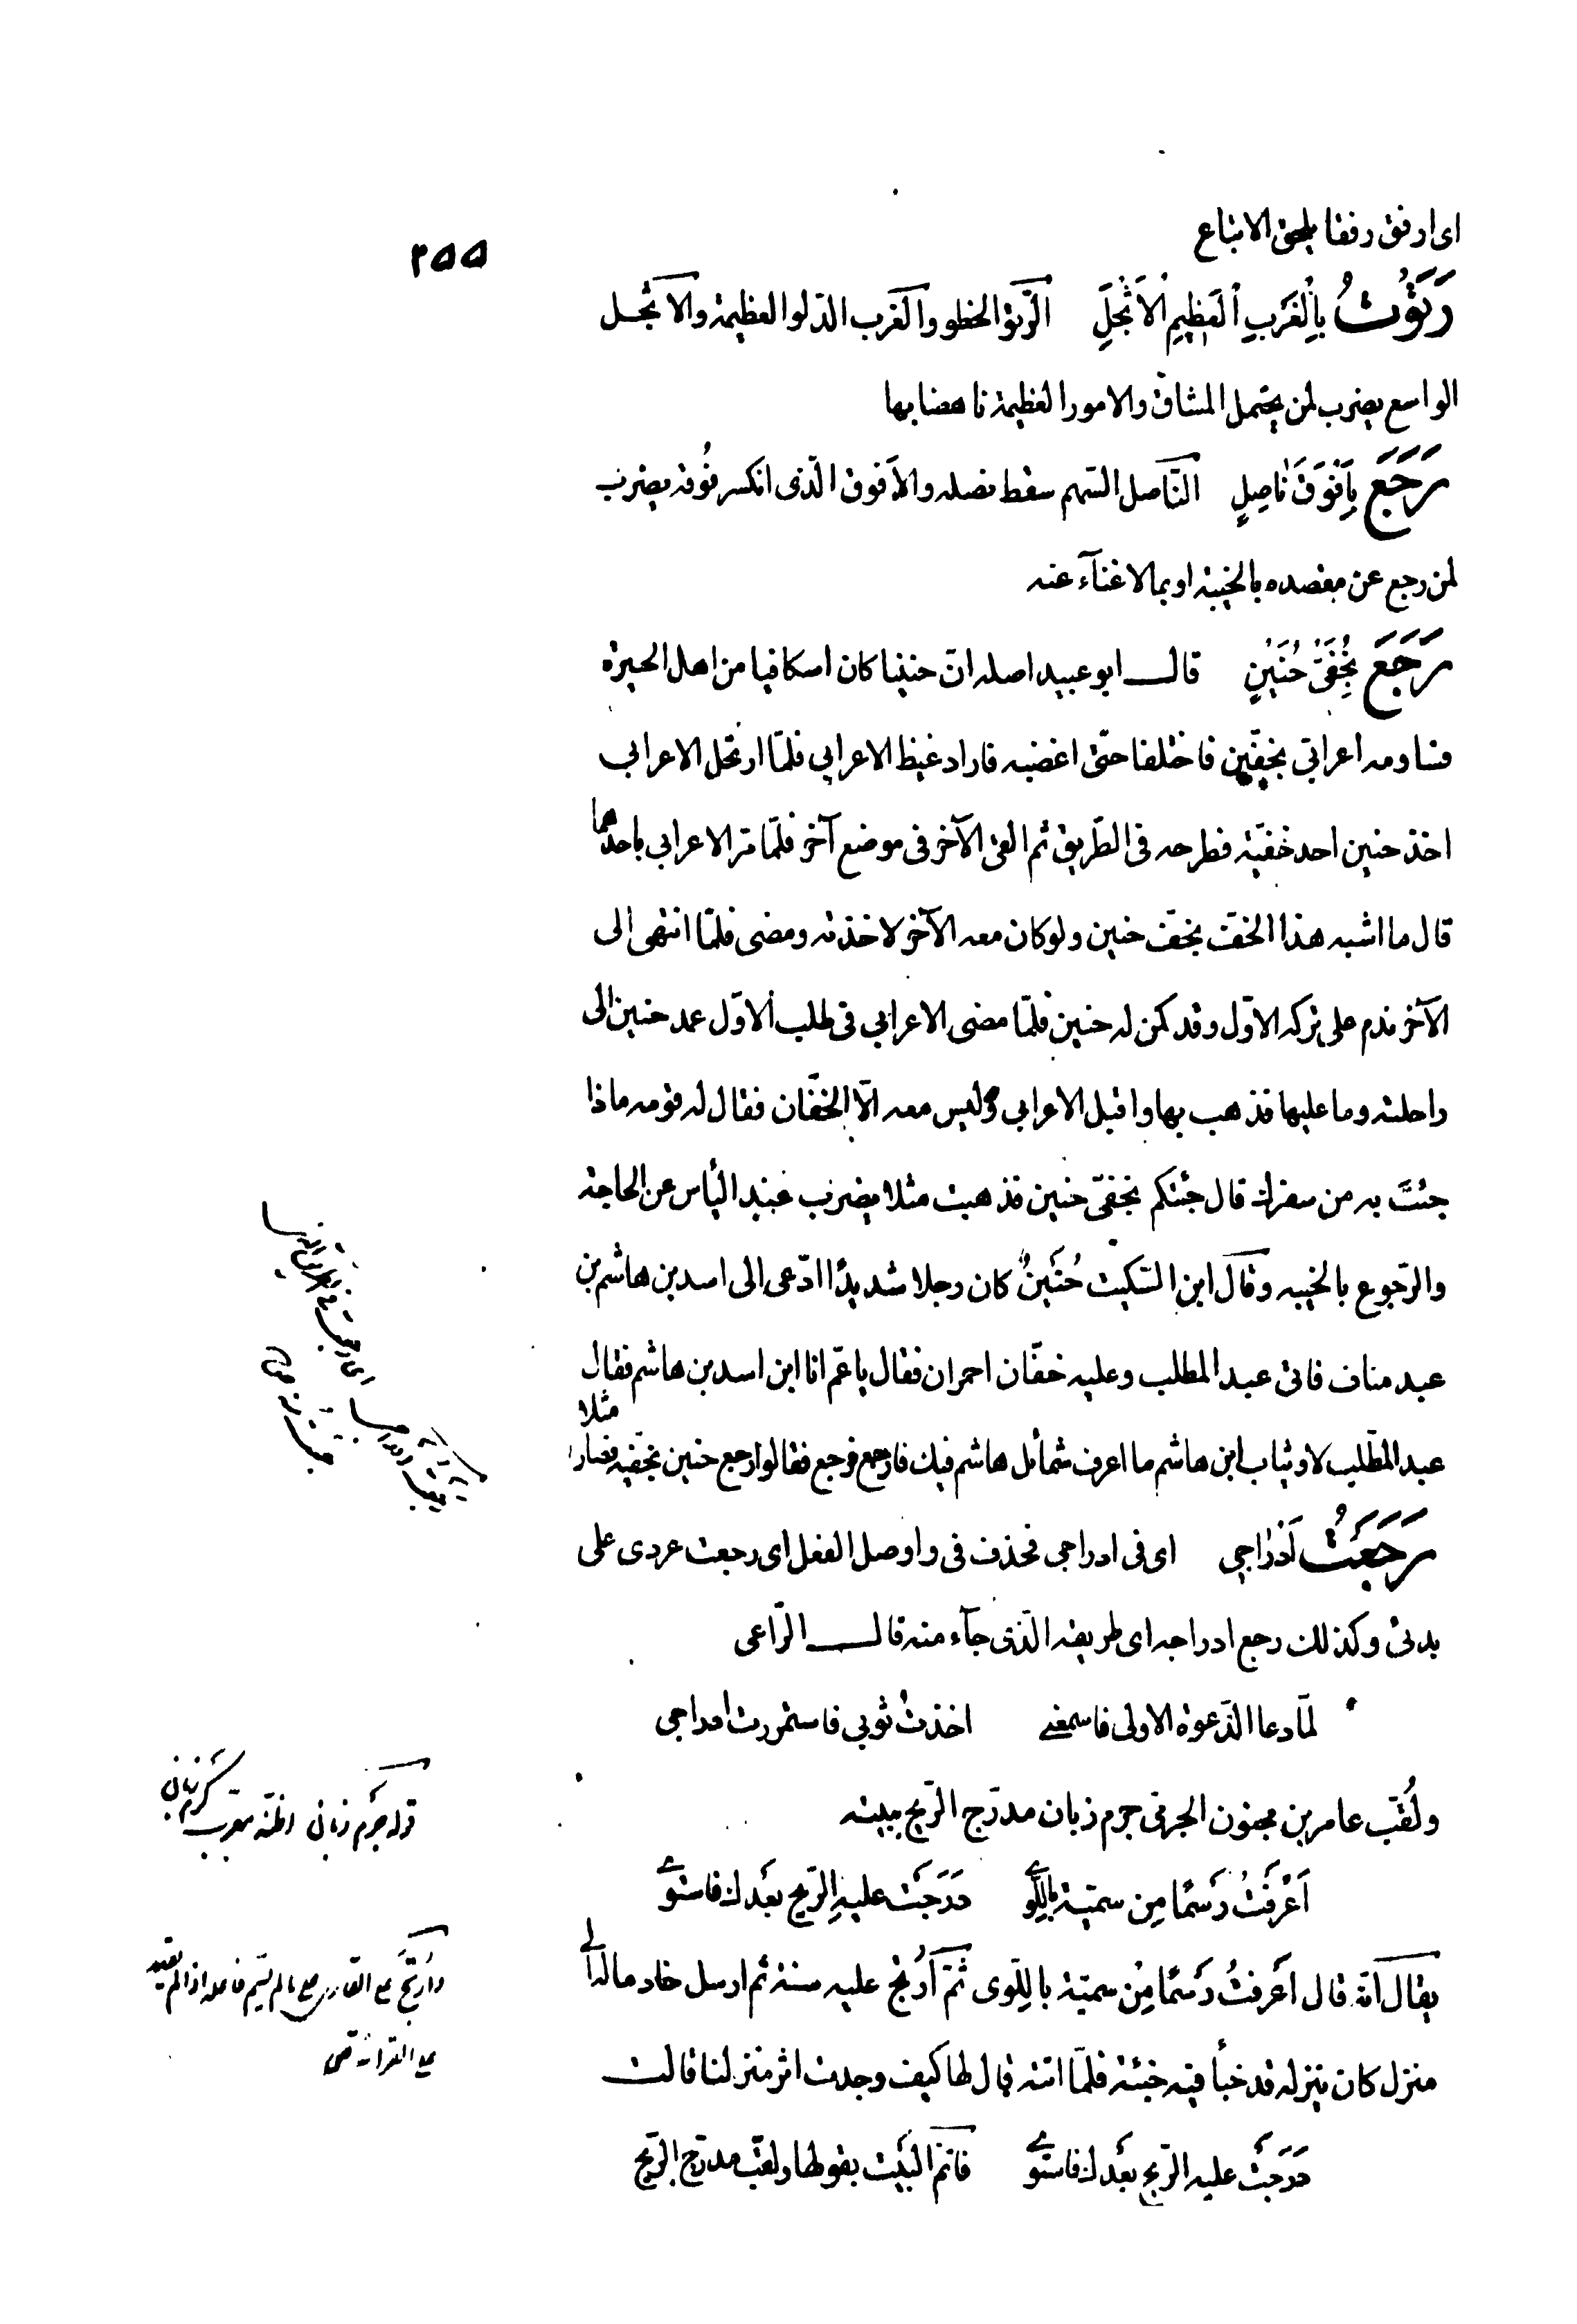 ٢٥٥
اى ارفق رفقا يلحق الاتباع
رَتَوْتُ بِالْغَرَبِ الْعَظِيمِ الْاَثْجَلِ الرّتو الخطو والغرب الدّلو العظيمة والاثجل
الواسع يضرب لمن يحتمل المشاقّ والامور العظيمة ناهضا بها
رَجَعَ بِاَفْوَقَ نَاصِلٍ النّاصل السّهم سقط نصله والافوق الّذى انكسر فُوقه يضرب
لمن رجع عن مقصده بالخيبة او بما لا غنآء عنه
رَجَعَ بِخُفَّىْ حُنَيْنٍ قال ابو عبيد اصله انّ حنينا كان اسكافيا من اهل الحيرة
فساومه اعرابىّ بخفّين فاختلفا حتّى اغضبه فاراد غيظ الاعرابي فلمّا ارتحل الاعرابي
اخذ حنين احد خفيّه فطرحه فى الطّريق ثم القى الآخر فى موضع آخر فلمّا مرّ الاعرابي باحدهما
قال ما اشبه هذا الخفّ بخفّ حنين ولو كان معه الآخر لاخذته ومضى فلمّا انتهى الى
الآخر ندم على تركه الاوّل وقد كمن له حنين فلمّا مضى الاعرابي فى طلب الاوّل عمد حنين الى
راحلته وما عليها فذهب بها واقبل الاعرابي وليس معه الّا الخفّان فقال له قومه ماذا
جئتَ به من سفرك قال جئتكم بخفىّ حنين فذهبت مثلا يضرب عند اليأس عن الحاجة
والرّجوع بالخيبه وقال ابن السّكيت حُنَينٌ كان رجلا شديدًا ادّعى الى اسد بن هاشم بن
عبد مناف فاتى عبد المطلب وعليه خفّان احمران فقال يا عمّ انا ابن اسد بن هاشم فقال
عبد المطّلب لا وثياب ابن هاشم ما اعرف شمائل هاشم فيك فارجع فرجع فقالوا رجع حنين بخفّيه فصار مثلا
رَجَعْتُ اَدْرَاجِي اى فى ادراجى فحذف فى واوصل الفعل اى رجعت عودى على
بدئى وكذلك رجع ادراجه اى طريقه الّذى جآء منه قال الرّاعى
لمّا دعا الدّعوة الاولى فاسمعنى اخذتُ ثوبي فاستمررت ادراجى
ولُقّب عامر بن مجنون الجرمى جرم زبان مدرّج الرّيح ببيته
اَعَرَفْتَ رَسْمًا مِن سميّة باللّوى دَرَجَتْ عليهِ الرّيح بعدك فاستوى
يقال انّه قال اَعَرفتَ رَسْمًا مِنْ سميّة باللِّوى ثمّ اُرْتِجَ عليه سنة ثم ارسل خادما له الى
منزل كان ينزله قد خبأ فيه خبئة فلمّا اتته قال لها كيف وجدت اثر منزلنا قالت
دَرَجَتْ عليه الرّيح بعدك فاستوى فاتمّ البيت بقولها ولقّب مدرّج الرّيح
قوله جرم زبان اظنّه معرب